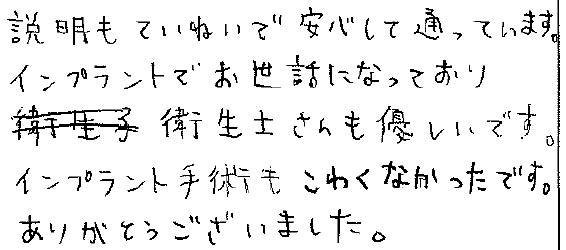 説明もていねいで安心して通っています。
インプラントでお世話になっており
衛生士さんも優しいです。
インプラント手術もこわくなかったです。
ありがとうございました。